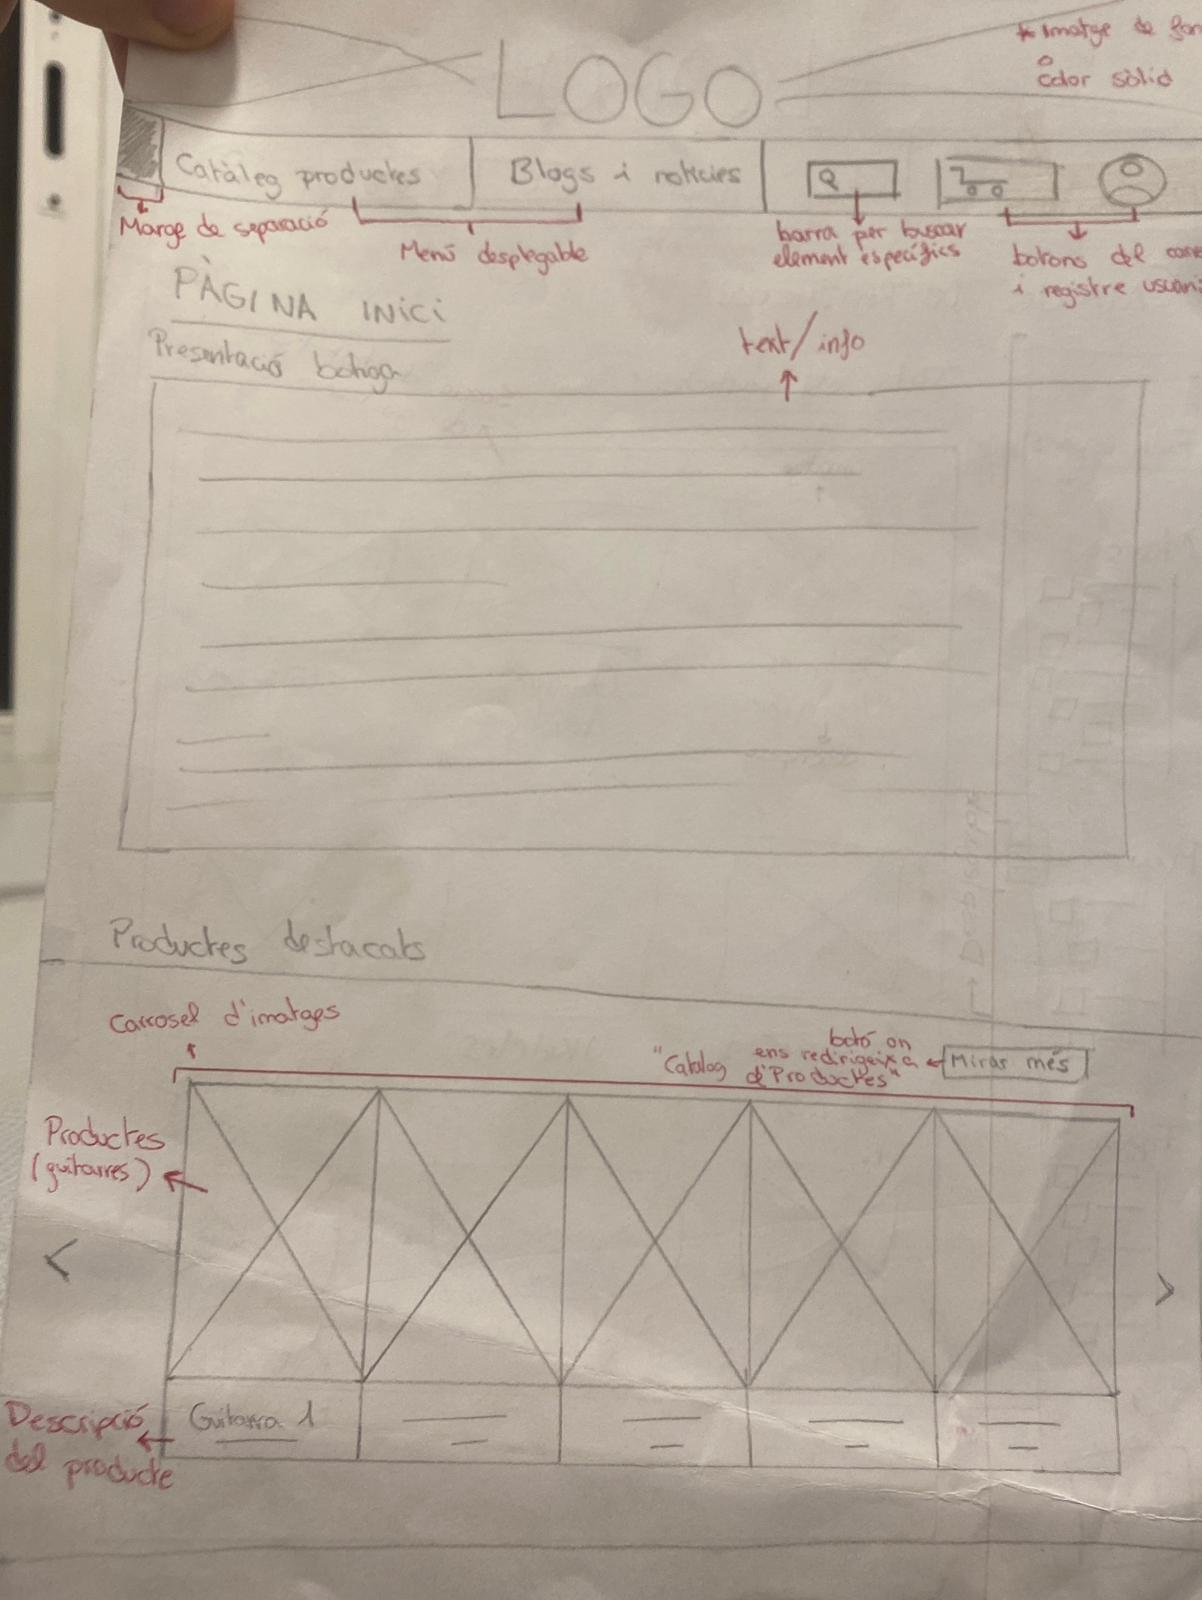 LOGO
* Imatge de
o
color sòlid
Catàleg productes
Blogs i notícies
Marge de separació
Menú desplegable
barra per buscar
element específics
botons del
i registre
PÀGINA INICI
Presentació botiga
text/info
Productes destacats
Carrosel d'imatges
botó on
ens redirigeix a
"Catalog d'Productes"
Mirar més
Productes
(guitarres)
<
>
Guitarra 1
Descripció
del producte